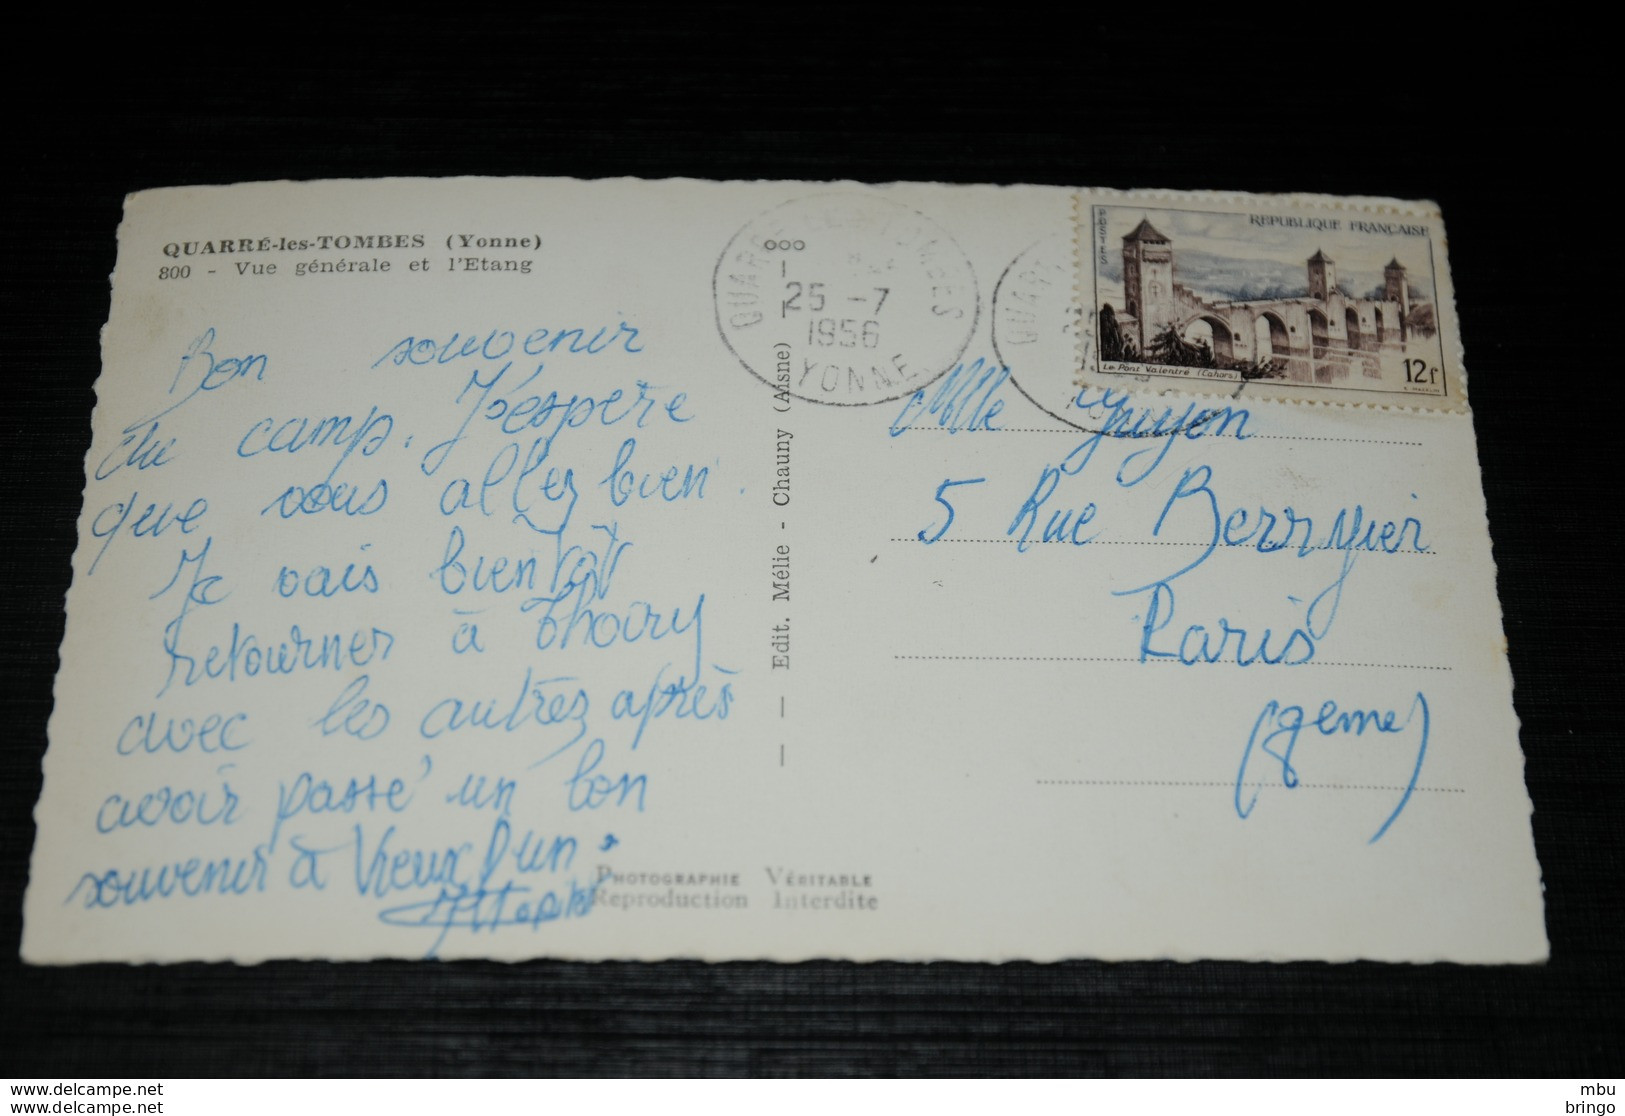 QUARRÉ-les-TOMBES (Yonne)
800 - Vue générale et l'Etang
Bon souvenir
du camp. J'éspère
que vous allez bien.
Je vais bientôt
retourner à Thoiry
avec les autres après
avoir passé un bon
souvenir à Vieux Dun.
Edit. Mélie - Chauny (Aisne)
PHOTOGRAPHIE VÉRITABLE
Reproduction Interdite
QUARRE LES TOMBES
25 -7
1956
YONNE
POSTES
REPUBLIQUE FRANÇAISE
Le Pont Valentré (Cahors)
12f
Mlle Guyon
5 Rue Berryer
Paris
(8eme)
www.delcampe.net
www.delcampe.net
mbu
bringo